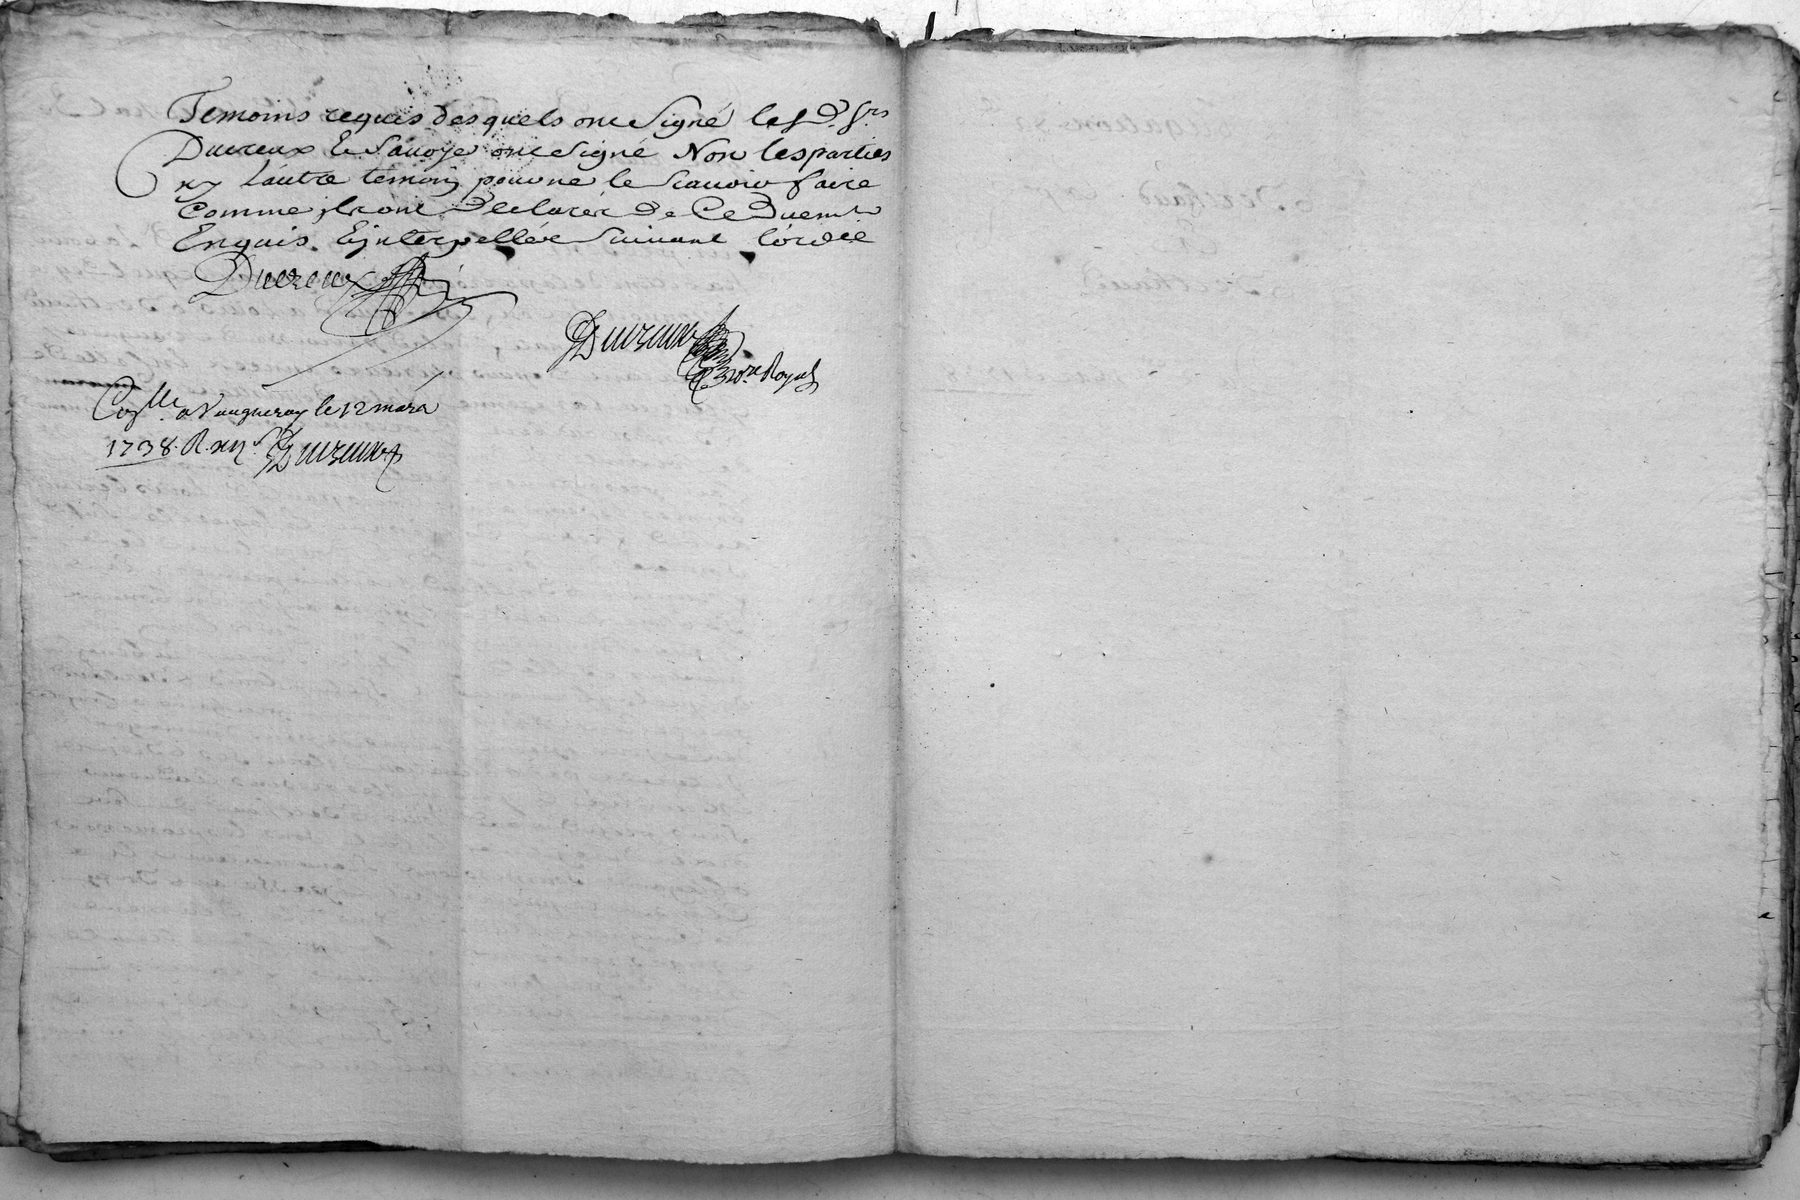 Temoins requis desquels ont signé les d. Srs
Ducreux & Savoye ont signé Non les parties
ny l'autre temoin pour ne le scavoir faire
Comme ils ont Declarer de Ce Duem.t
Enquis & jnterpellée suivant l'ordce
Ducreux
Ducreux
Nore Royal
Con.lle a Vaugneray le 12 mars
1738. R. xii s. Ducreux